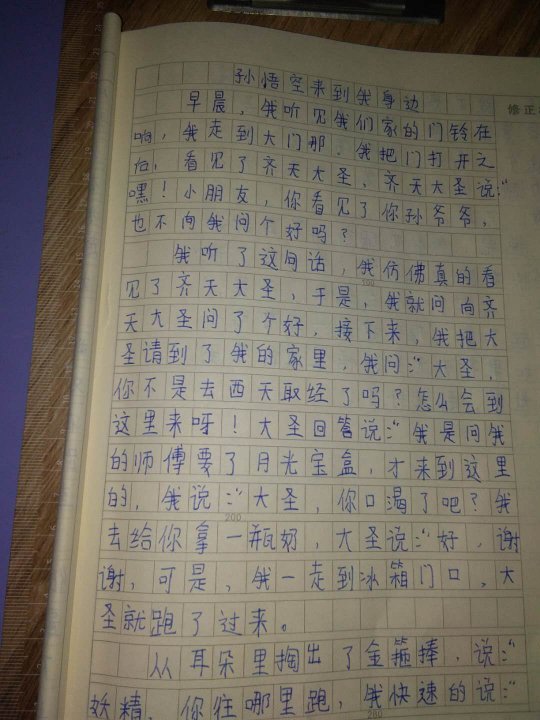 孙悟空来到我身边
修正
早晨，我听见我们家的门铃在
响，我走到大门那．我把门打开之
后，看见了齐天大圣，齐天大圣说：“
嘿！小朋友，你看见了你孙爷爷，
也不向我问个好吗？
我听了这句话，我仿佛真的看
见了齐天大圣，于是，我就问向齐
天大圣问了个好，接下来，我把大
圣请到了我的家里，我问：“大圣，
你不是去西天取经了吗？怎么会到
这里来呀！大圣回答说：“我是问我
的师傅要了月光宝盒，才来到这里
的，我说：“大圣，你口渴了吧？我
200
去给你拿一瓶奶，大圣说：“好，谢
谢，可是，我一走到冰箱门口，大
圣就跑了过来。
从耳朵里掏出了金箍捧，说：“
妖精，你往哪里跑，我快速的说：“